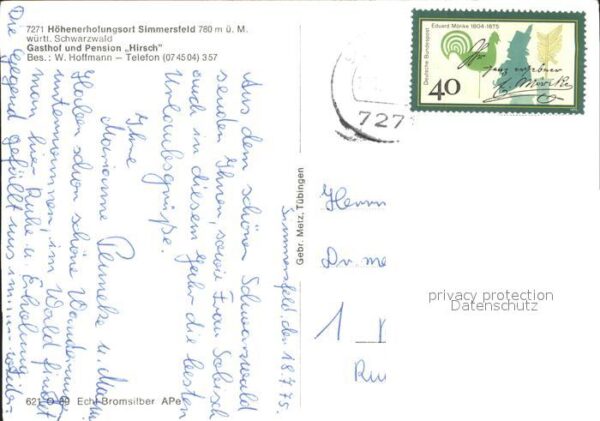 7271 Höhenerholungsort Simmersfeld 780 m ü. M.
württ. Schwarzwald
Gasthof und Pension „Hirsch"
Bes.: W. Hoffmann — Telefon (07 45 04) 3 57
Simmersfeld, den 18.7.75.
Aus dem schönen Schwarzwald
senden Ihnen, sowie Frau
auch in diesem Jahr die besten
Urlaubsgrüße.
Ihre
Marianne u.
Haben schon schöne Wanderungen
unternommen, im Wald findet
man hier Ruhe u. Erholung
Die Gegend gefällt uns
621 O 89 Echt Bromsilber APe
Gebr. Metz, Tübingen
Eduard Mörike 1804-1875
Deutsche Bundespost
40
727
Herrn
Dr. me
1
privacy protection
Datenschutz